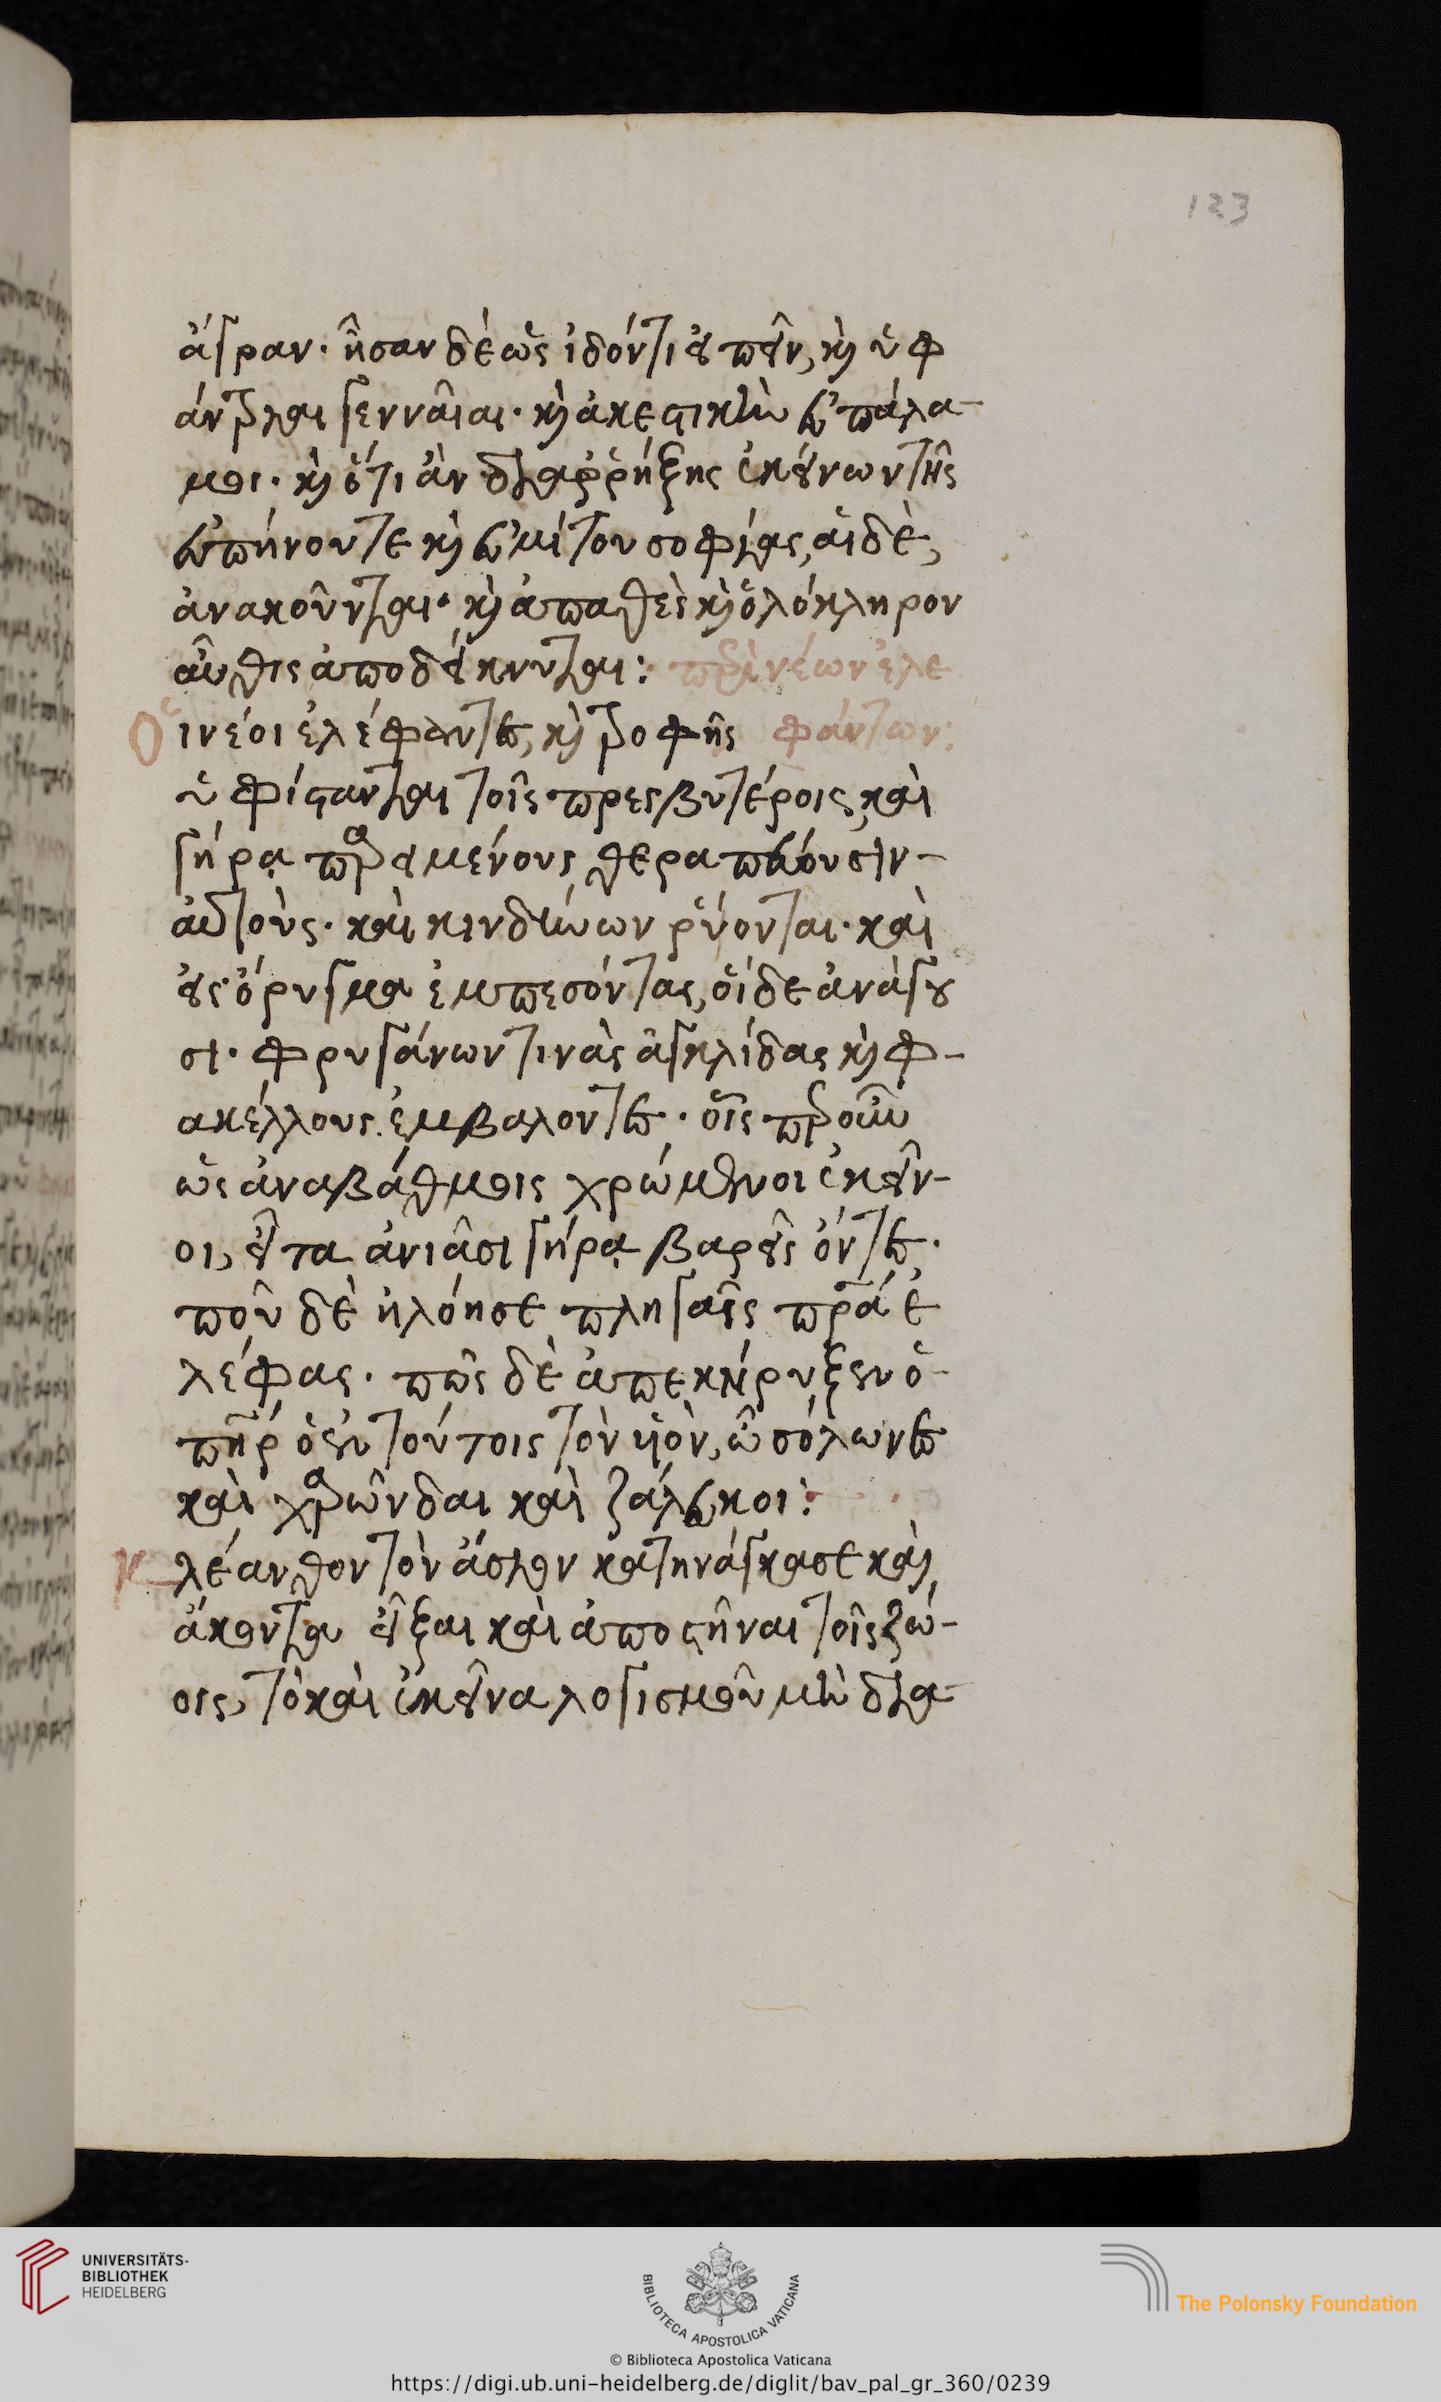 123
ἄγραν· ἦσαν δὲ ὡς ἰδόντι εἰπεῖν, καὶ ὑφ
άντριαι γενναῖαι· καὶ ἀκεστικὴν εὐπάλα-
μοι· καὶ ὅτι ἂν διαρρήξῃς ἐκείνων τῆς
εὐπήνου τε καὶ εὐμίτου σοφίας, αἱ δὲ,
ἀνακοῦνται· καὶ ἀπαθὲς καὶ ὁλόκληρον
αὖθις ἀποδείκνυται: περὶ νέων ἐλε
Οἱ νέοι ἐλέφαντες, καὶ τροφῆς φάντων:
ὑφίστανται τοῖς πρεσβυτέροις, καὶ
γήρᾳ παρειμένους θεραπεύουσιν-
αὐτοὺς· καὶ κινδύνων ῥύονται· καὶ
εἰς ὄρυγμα ἐμπεσόντας, οἵδε ἀνάγου
σι· φρυγάνων τινὰς ἀγκλίδας καὶ φ-
ακέλλους ἐμβαλοντες· οἷς προοῦν
ὡς ἀναβάθμοις χρώμενοι ἐκεῖν-
οι, εἶτα ἀνιᾶσι γήρᾳ βαρεῖς ὄντες·
ποῦ δὲ ἠλόησε πληγαῖς πρα ἐ
λέφας· πῶς δὲ ἀπεκήρυξεν ὁ-
πηρ ὁ ἐν τούτοις τὸν υἱὸν, ὦ σόλωνες
καὶ χαρῶνδαι καὶ ζάλευκοι:
Κλέανθον τὸν ἄσιον κατηνάγκασε καὶ
ἄκοντα εἶξαι καὶ ἀποστῆναι τοῖς ζώ-
οις, τὸ καὶ ἐκεῖνα λογισμοῦ μὴ δια-
UNIVERSITÄTS-
BIBLIOTHEK
HEIDELBERG
BIBLIOTECA APOSTOLICA VATICANA
The Polonsky Foundation
© Biblioteca Apostolica Vaticana
https://digi.ub.uni-heidelberg.de/diglit/bav_pal_gr_360/0239